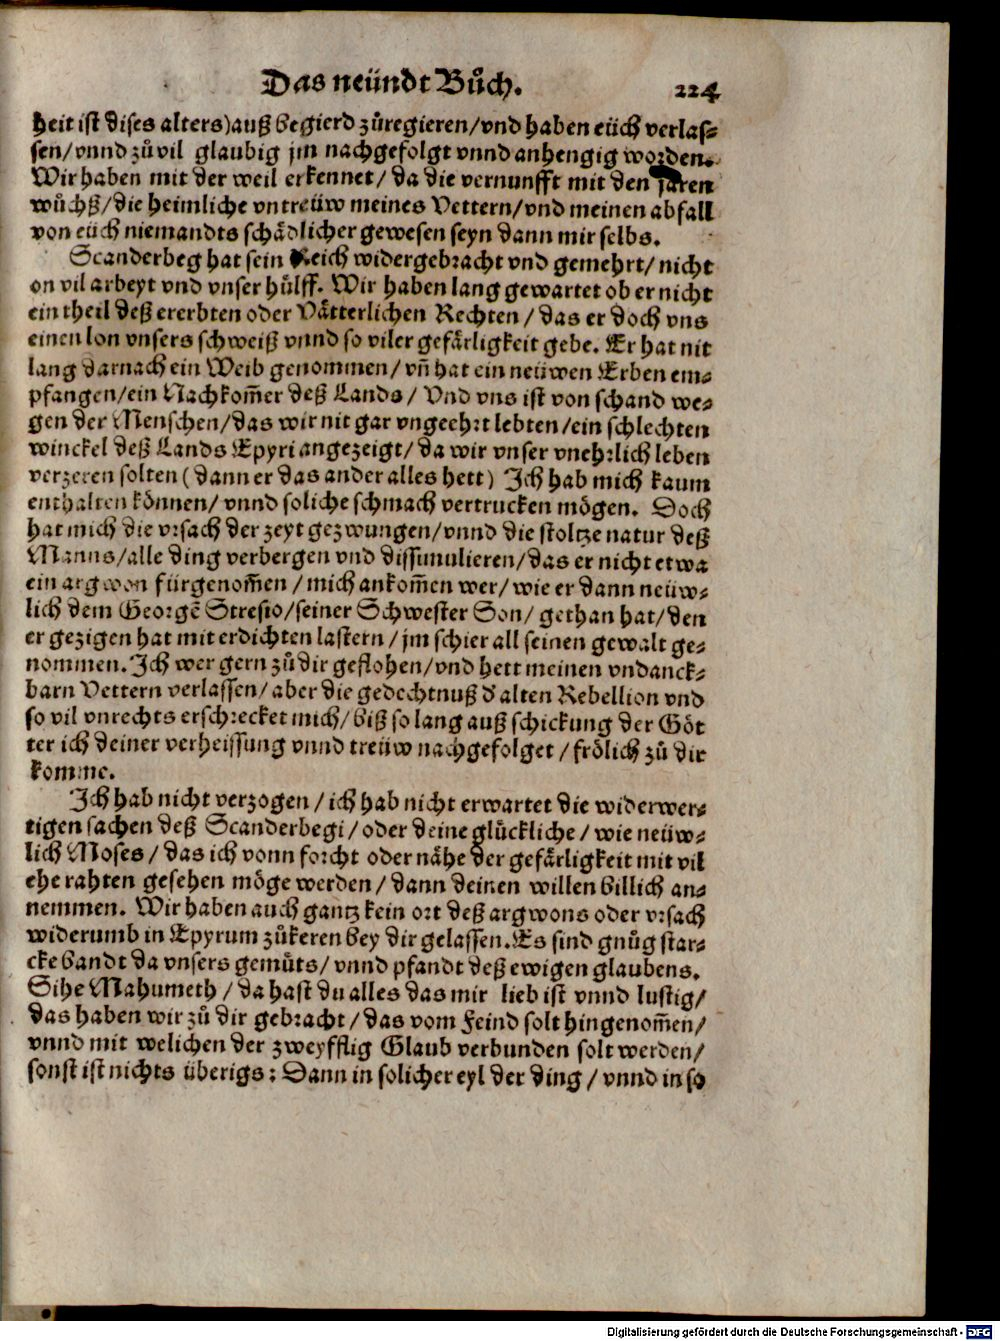 Das neündt Bůch. 224
heit ist dises alters) auß begierd zůregieren/vnd haben eüch verlas⸗
sen/vnnd zůvil glaubig jm nachgefolgt vnnd anhengig worden.
Wir haben mit der weil erkennet/ da die vernunfft mit den jaren
wůchß/die heimliche vntreüw meines Vettern/vnd meinen abfall
von eüch niemandts schädlicher gewesen seyn dann mir selbs.
Scanderbeg hat sein Reich widergebracht vnd gemehrt/ nicht
on vil arbeyt vnd vnser hülff. Wir haben lang gewartet ob er nicht
ein theil deß ererbten oder Vätterlichen Rechten/ das er doch vns
einen lon vnsers schweiß vnnd so viler gefärligkeit gebe. Er hat nit
lang darnach ein Weib genommen/ vñ hat ein neüwen Erben em⸗
pfangen/ein Nachkom̃er deß Lands/ Vnd vns ist von schand we⸗
gen der Menschen/das wir nit gar vngeehrt lebten/ein schlechten
winckel deß Lands Epyri angezeigt/ da wir vnser vnehrlich leben
verzeren solten (dann er das ander alles hett) Ich hab mich kaum
enthalten können/ vnnd soliche schmach vertrucken mögen. Doch
hat mich die vrsach der zeyt gezwungen/vnnd die stoltze natur deß
Manns/alle ding verbergen vnd dissimulieren/das er nicht etwa
ein argwon fürgenom̃en/ mich ankom̃en wer/ wie er dann neüw⸗
lich dem Georgẽ Stresio/seiner Schwester Son/ gethan hat/den
er gezigen hat mit erdichten lastern/ jm schier all seinen gewalt ge⸗
nommen. Ich wer gern zů dir geflohen/vnd hett meinen vndanck⸗
barn Vettern verlassen/ aber die gedechtnuß d' alten Rebellion vnd
so vil vnrechts erschrecket mich/ biß so lang auß schickung der Göt
ter ich deiner verheissung vnnd treüw nachgefolget/ frölich zů dir
komme.
Ich hab nicht verzogen/ ich hab nicht erwartet die widerwer⸗
tigen sachen deß Scanderbegi/ oder deine glückliche/ wie neüw⸗
lich Moses/ das ich vonn forcht oder nähe der gefärligkeit mit vil
ehe rahten gesehen möge werden/ dann deinen willen billich an⸗
nemmen. Wir haben auch gantz kein ort deß argwons oder vrsach
widerumb in Epyrum zůkeren bey dir gelassen. Es sind gnůg star⸗
cke bandt da vnsers gemüts/ vnnd pfandt deß ewigen glaubens.
Sihe Mahumeth/ da hast du alles das mir lieb ist vnnd lustig/
das haben wir zů dir gebracht/ das vom Feind solt hingenom̃en/
vnnd mit welichen der zweyfflig Glaub verbunden solt werden/
sonst ist nichts überigs: Dann in solicher eyl der ding/ vnnd in so
Digitalisierung gefördert durch die Deutsche Forschungsgemeinschaft - DFG